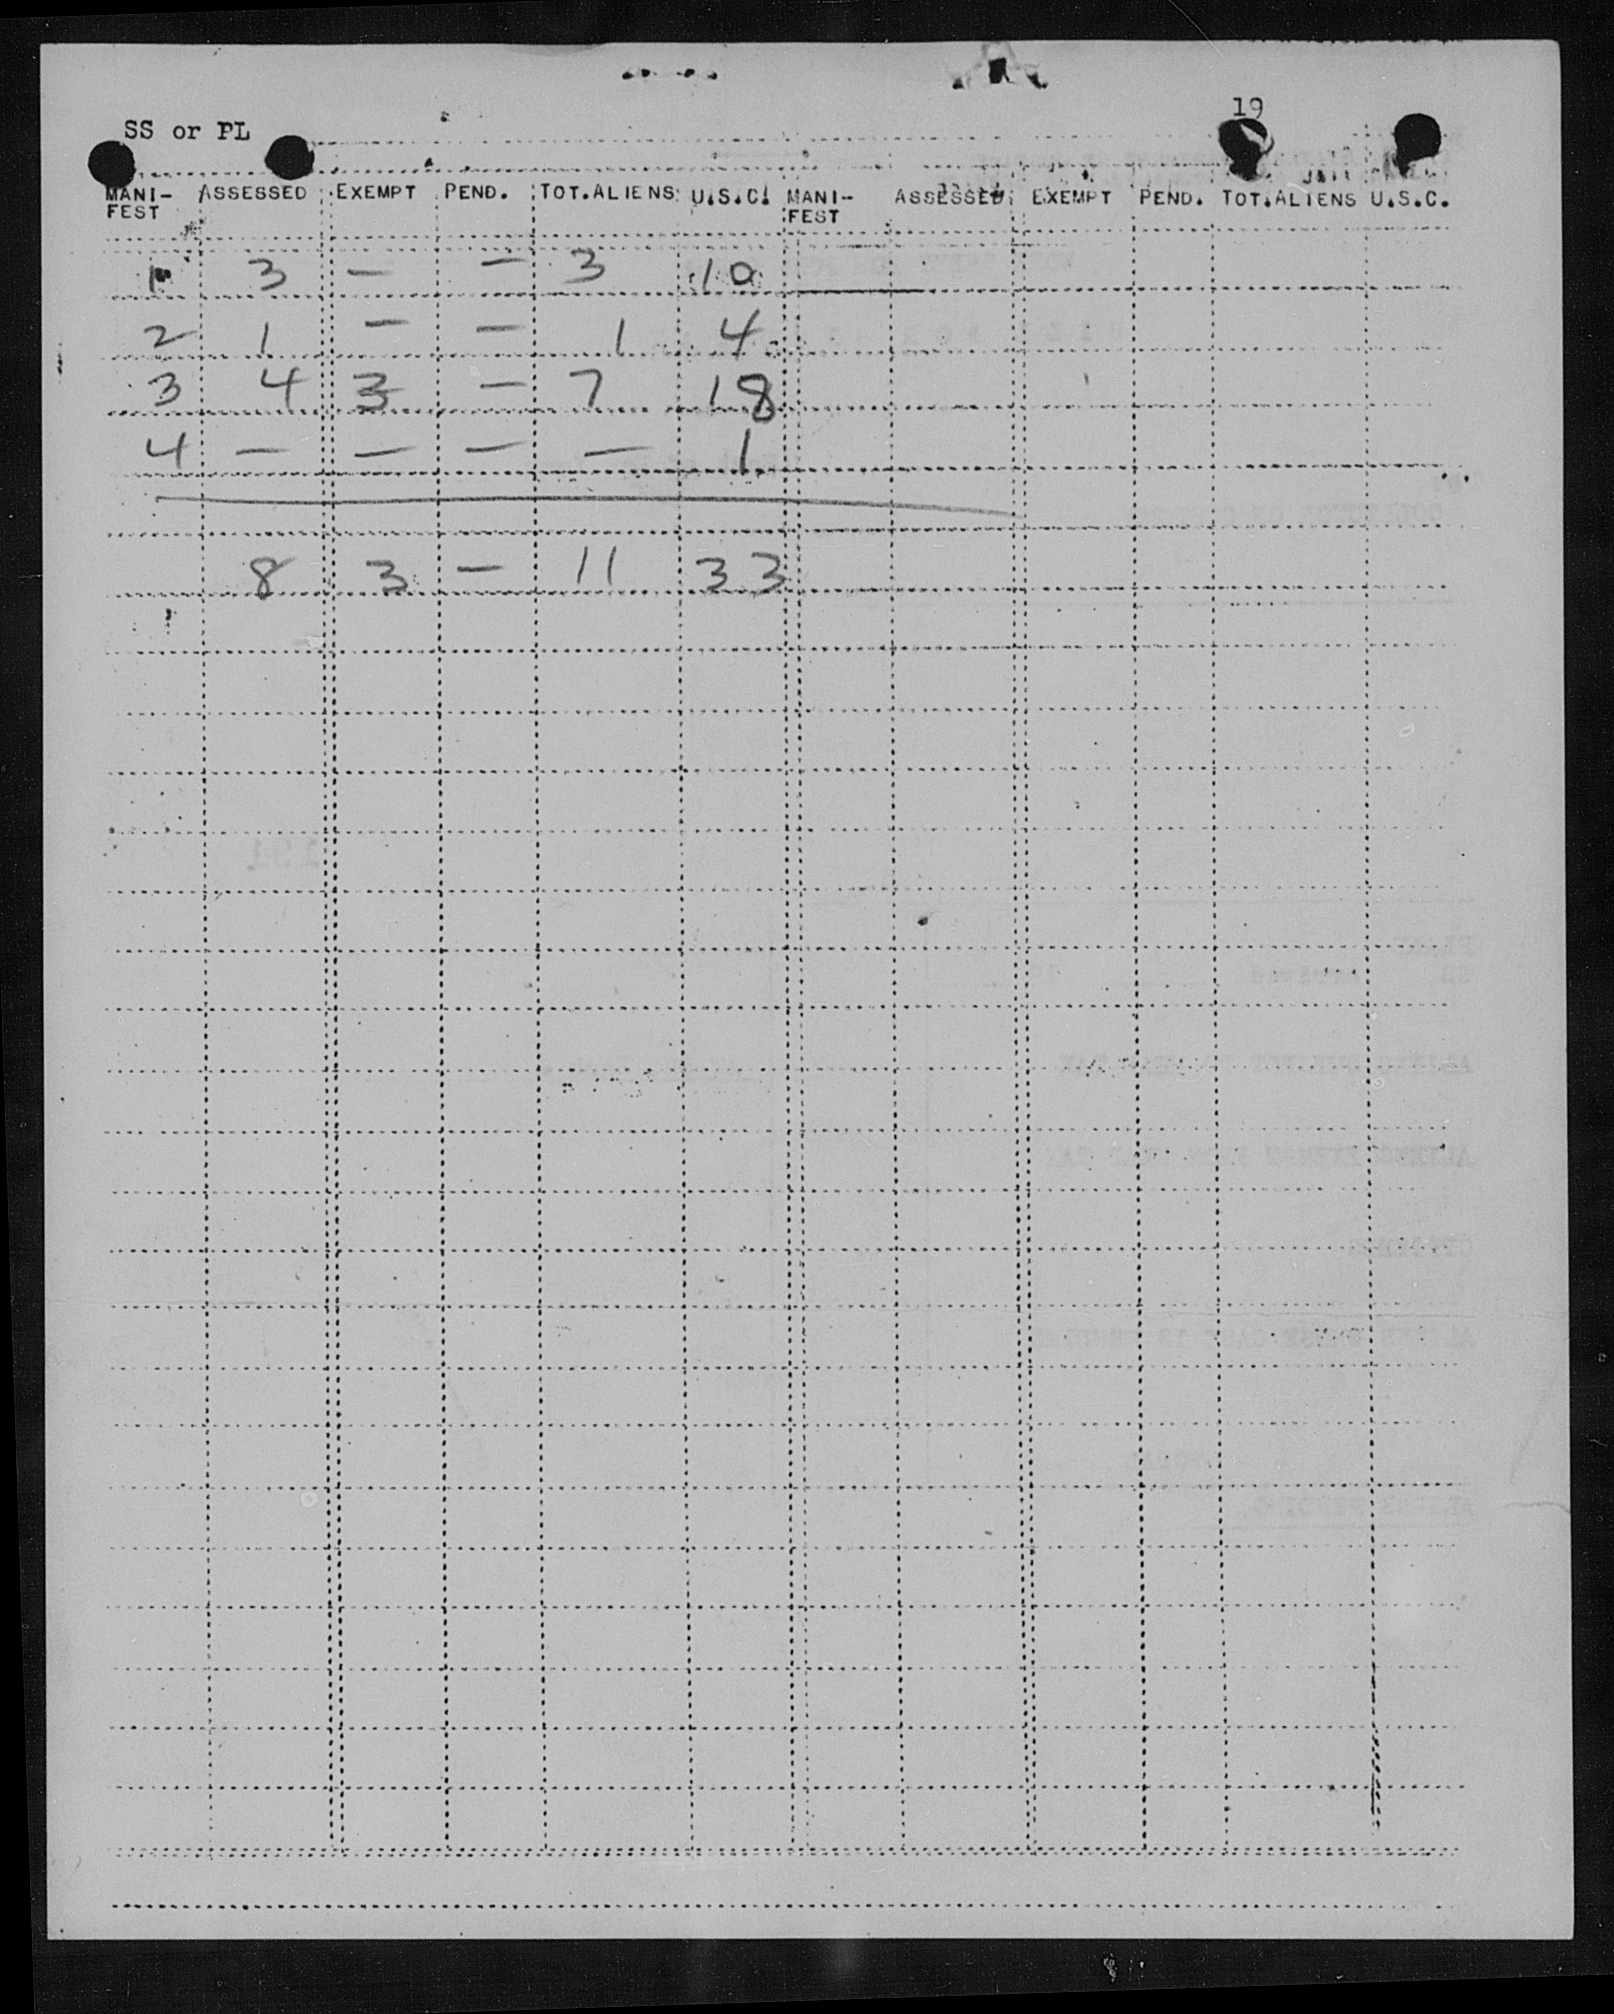 19
SS or PL
MANI- ASSESSED EXEMPT PEND. TOT.ALIENS U.S.C. MANI- ASSESSED EXEMPT PEND. TOT.ALIENS U.S.C.
FEST FEST
1 3 — — 3 10
2 1 — — 1 4
3 4 3 — 7 18
4 — — — — 1
8 3 — 11 33